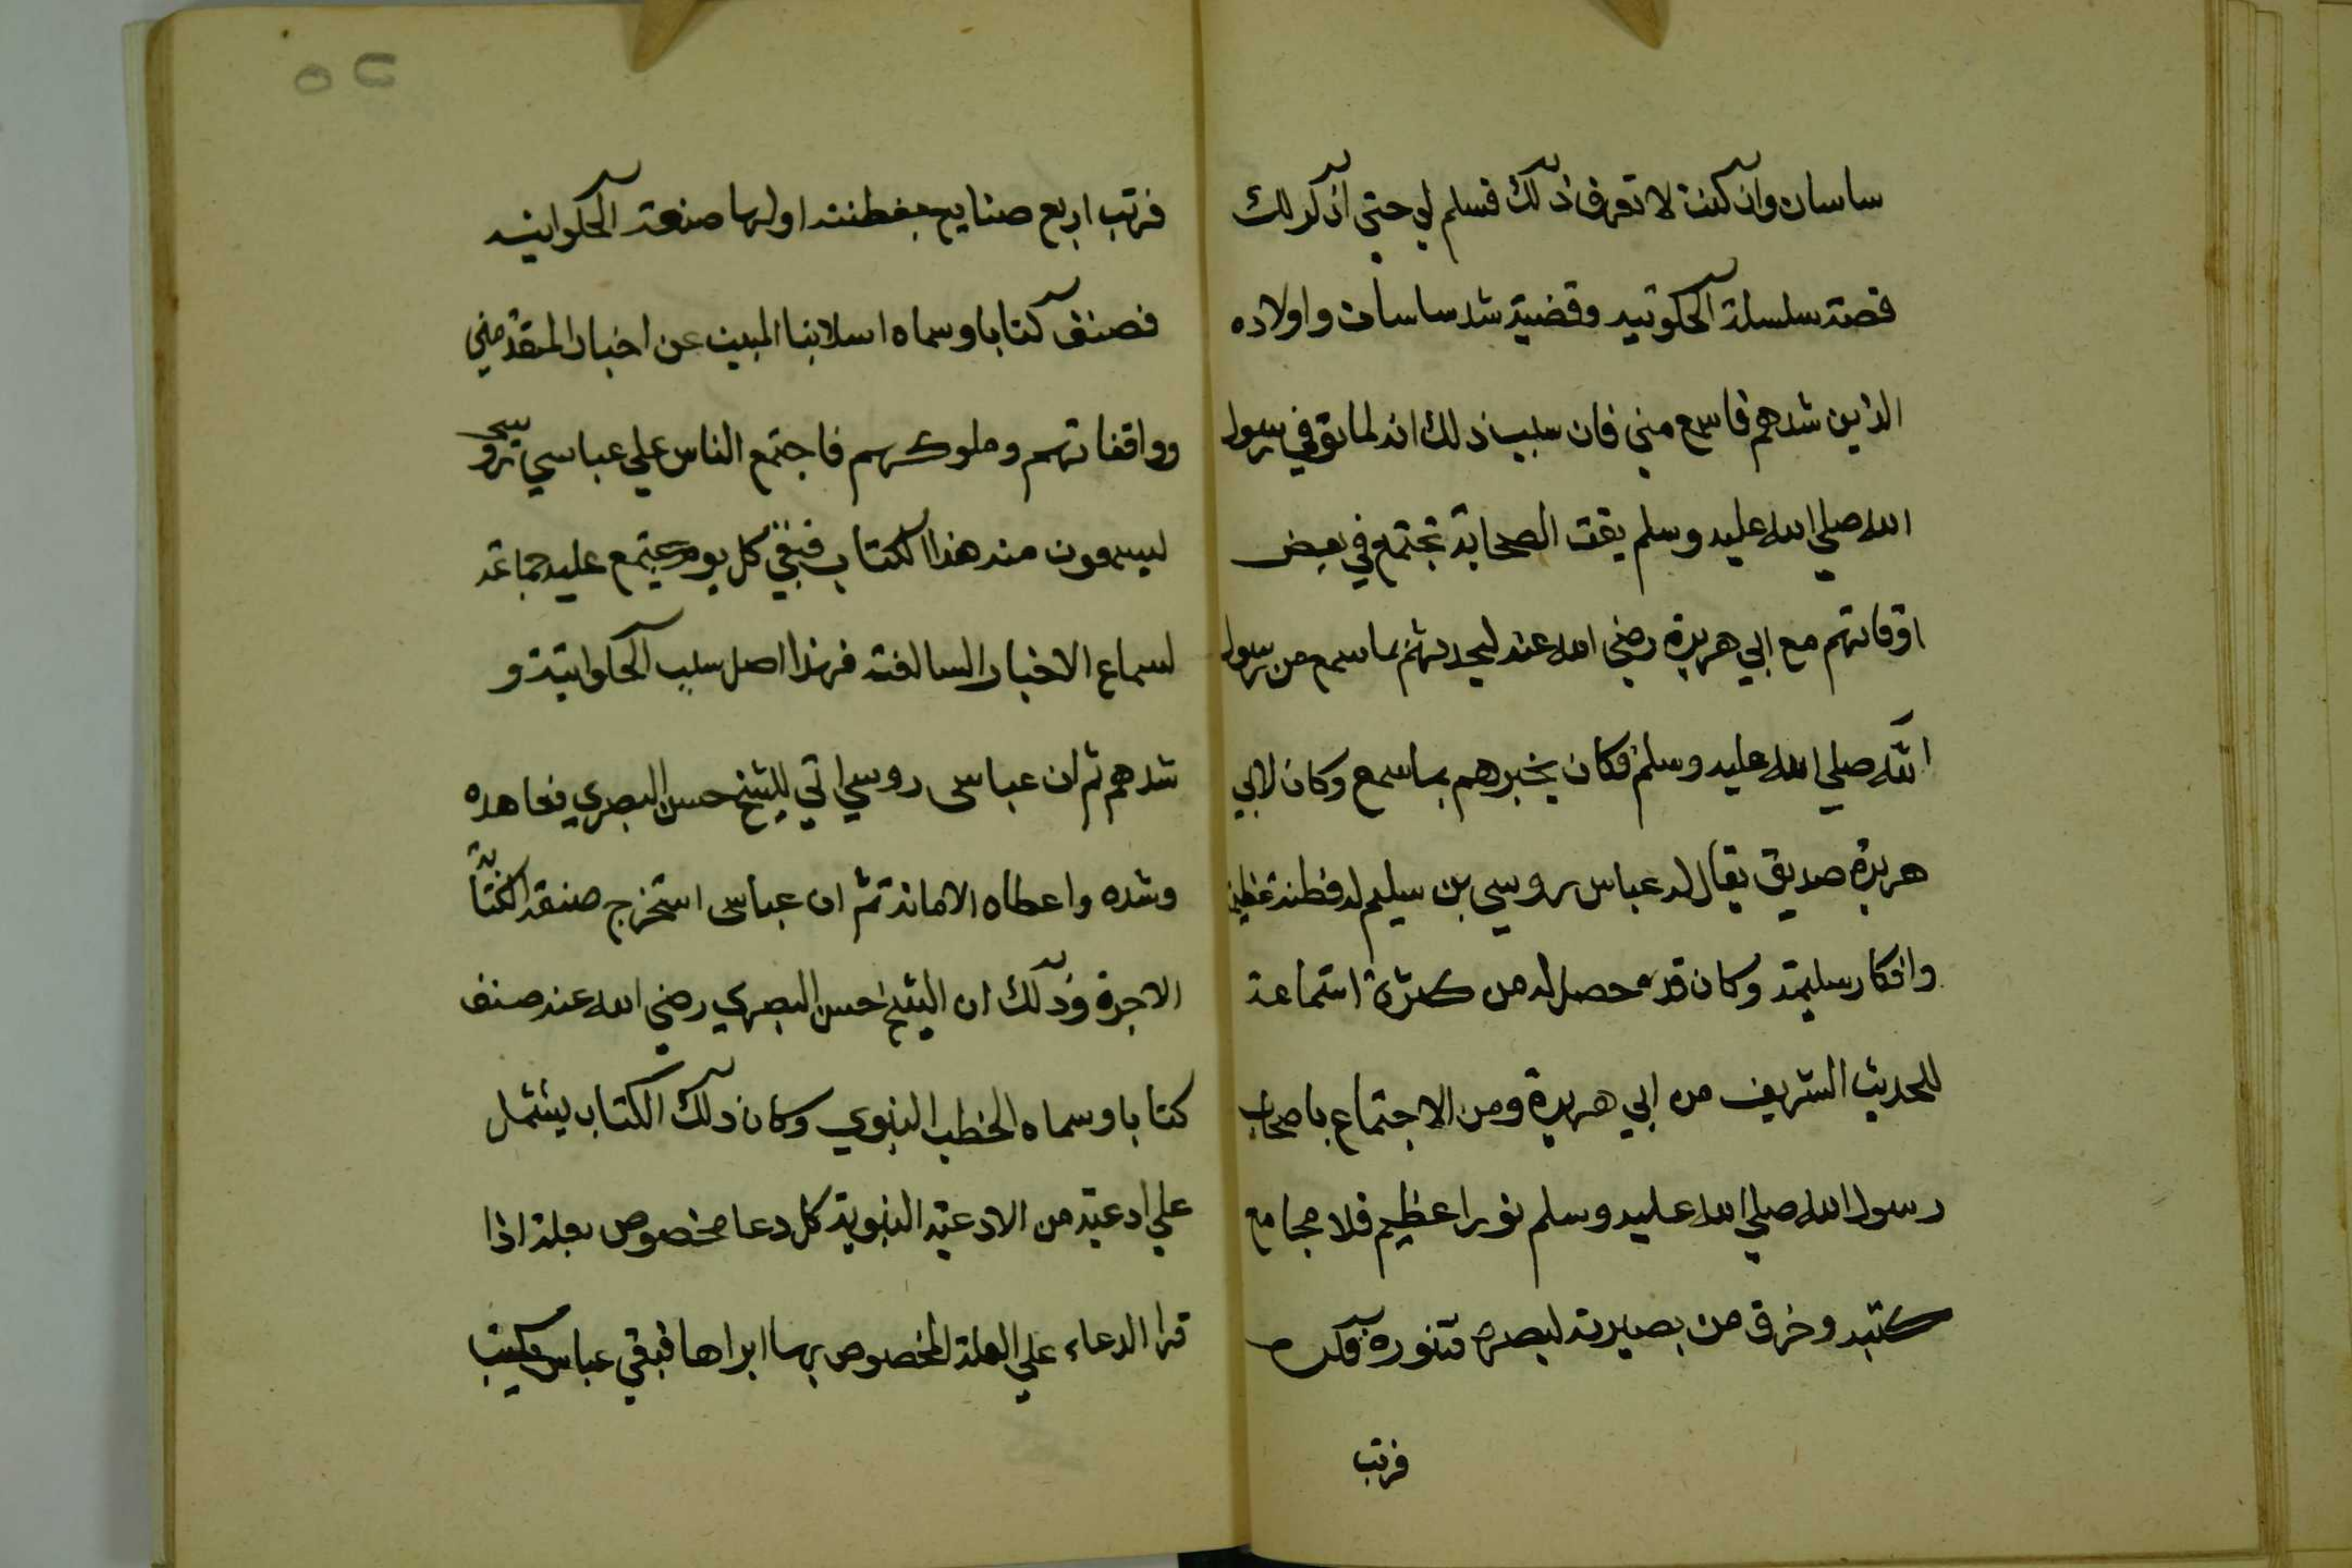 ساسان وان كنت لا تعرف ذلك فسلم لي حتي اذكر لك
قصة سلسلة الحكوتيه وقضية شد ساسان واولاده
الذين شدهم فاسمع مني فان سبب ذلك انه لما توفي رسول
الله صلي الله عليه وسلم بقت الصحابة تجتمع في بعض
اوقاتهم مع ابي هريرة رضي الله عنه ليحدثهم بما سمع من رسول
الله صلي الله عليه وسلم فكان يخبرهم بما سمع وكان لابي
هريرة صديق يقال له عباس روسي بن سيلم له فطنة عظيمة
وافكار سليمة وكان قد حصل له من كثرة استماعة
للحديث الشريف من ابي هريرة ومن الاجتماع باصحاب
رسول الله صلي الله عليه وسلم نورا عظيم فلا مجامع
كتبه وخرق من بصيرته لبصره فتنوره فكره
فرتب
٥٢
فرتب اربع صنايع بفطنته اولها صنعة الحكواتيه
فصنف كتابا وسماه اسلابنا المبين عن اخبار المتقدمين
وواقفاتهم وملوكهم فاجتمع الناس علي عباسي
ليسمعون منه هذا الكتاب فبقي كل يوم يجتمع عليه جماعة
لسماع الاخبار السالفة فهذا اصل سبب الحكواتية و
شدهم ثم ان عباس روسي اتي للشيخ حسن البصري فعاهده
وشده واعطاه الامانة ثم ان عباس استخرج صنعة الكتابة
الاجرة وذلك ان الشيخ حسن البصري رضي الله عنه صنف
كتابا وسماه الخطب النبوي وكان ذلك الكتاب يشتمل
علي ادعية من الادعية النبوية كل دعا مخصوص بعلة اذا
قرا الدعاء علي العلة المخصوص بها ابراها فبقي عباس يكتب